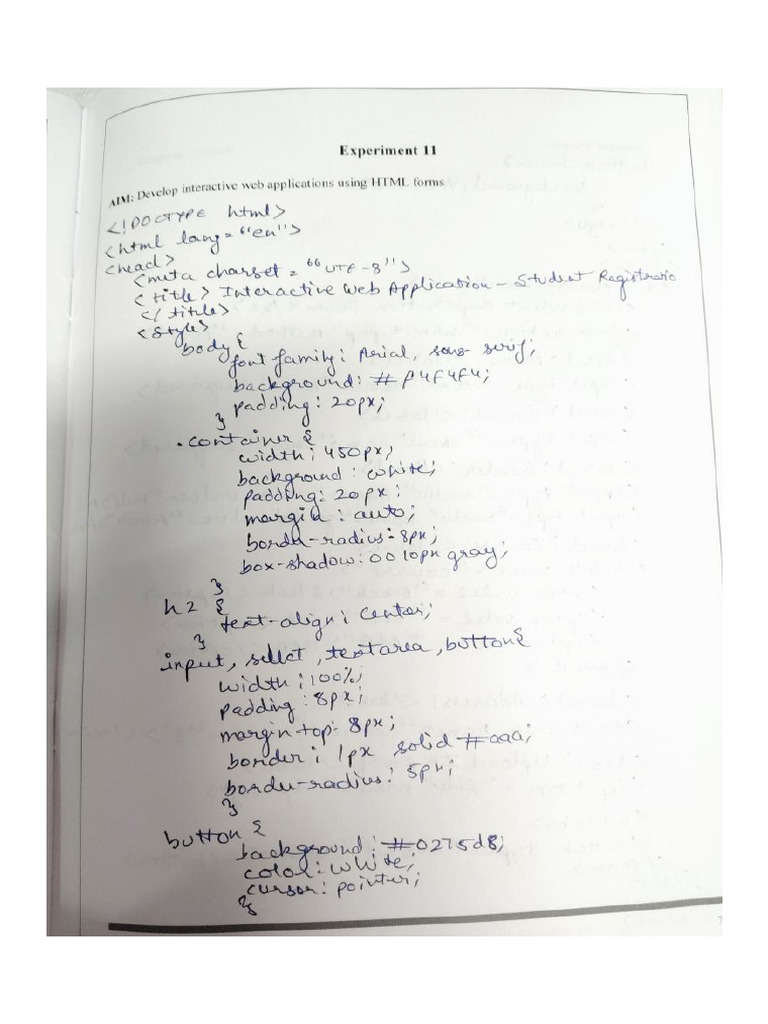 Experiment 11
AIM: Develop interactive web applications using HTML forms
<!DOCTYPE html>
<html lang="en">
<head>
<meta charset="UTF-8">
<title> Interactive Web Application - Student Registratio
</title>
<style>
body {
font family: Arial, sans-serif;
background: #f4f4f4;
padding: 20px;
}
.container {
width: 450px;
background: white;
padding: 20px;
margin: auto;
border-radius: 8px;
box-shadow: 0 0 10px gray;
}
h2 {
text-align: center;
}
input, select, textarea, button {
width: 100%;
padding: 8px;
margin-top: 8px;
border: 1px solid #aaa;
border-radius: 5px;
}
button {
background: #0275d8;
color: white;
cursor: pointer;
}